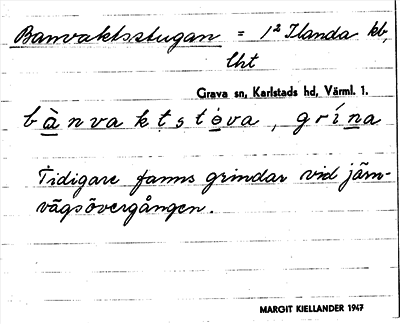 Banvaktsstugan = 1² Ilanda kb,
lht
Grava sn, Karlstads hd, Värml. 1.
bànvaktstova, grína
Tidigare fanns grindar vid järn-
vägsövergången.
MARGIT KIELLANDER 1947